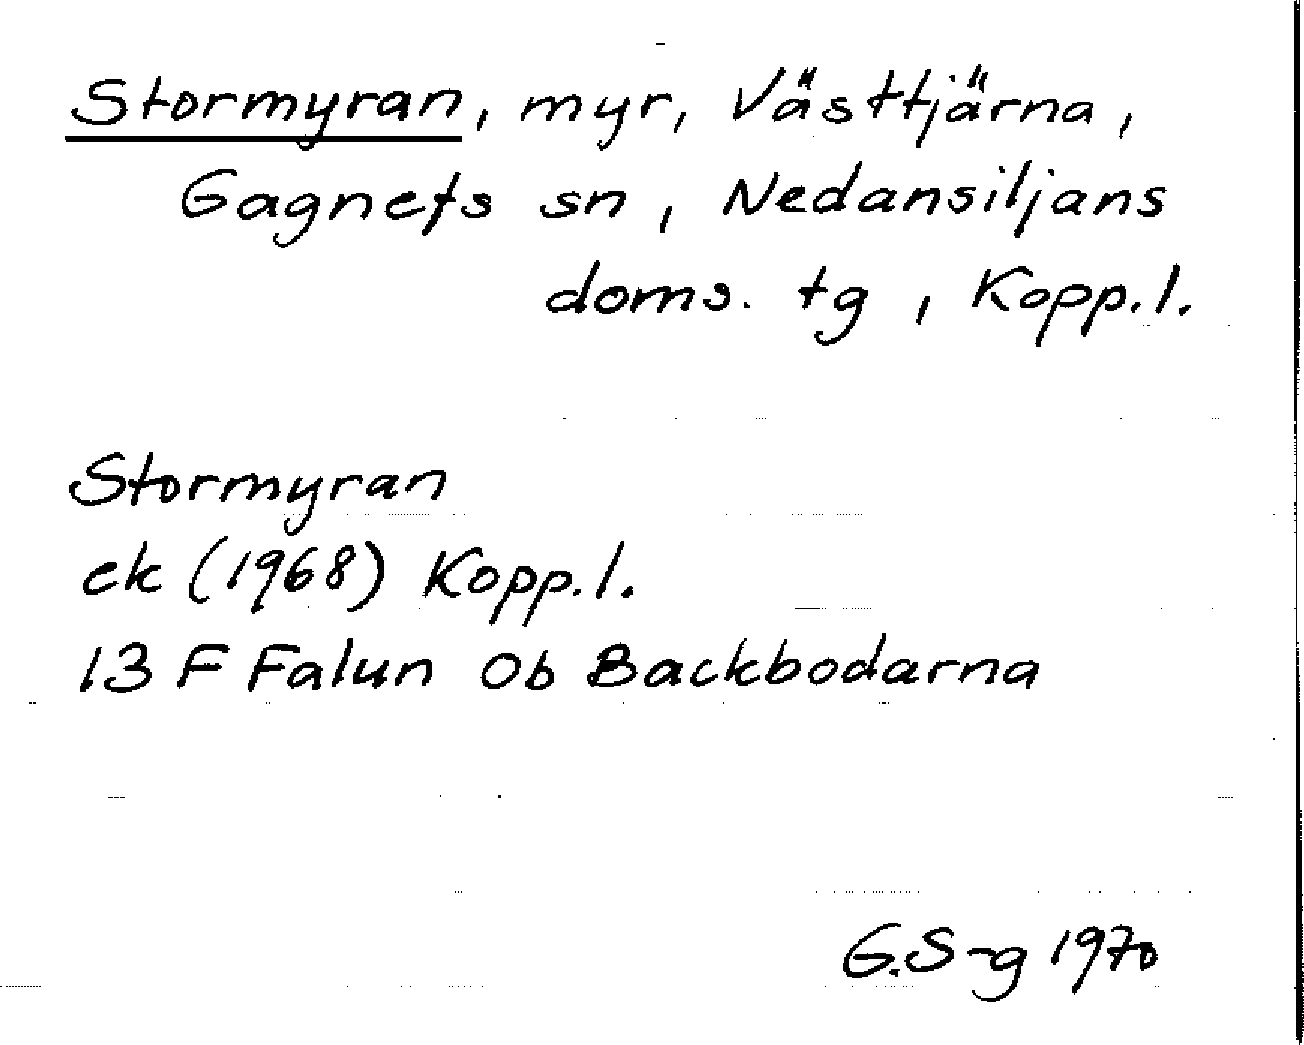 Stormyran, myr, Västtjärna,
Gagnefs sn, Nedansiljans
doms. tg, Kopp.l.
Stormyran
ek (1968) Kopp.l.
13 F Falun 0b Backbodarna
G.S-g 1970